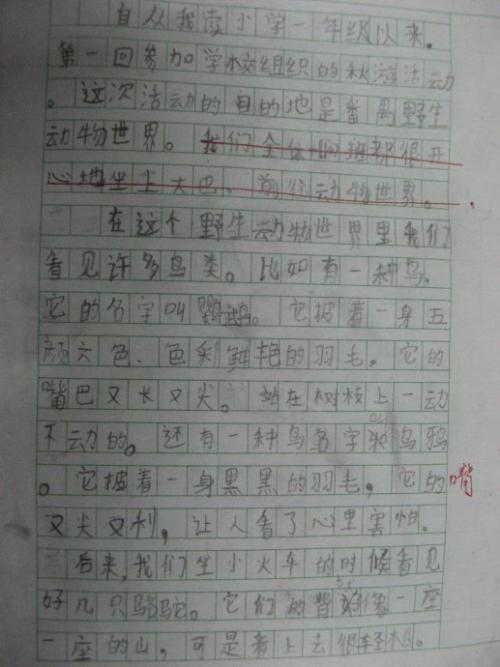 自从我读小学一年级以来，
第一回参加学校组织的秋游活动
。这次活动的目的地是番禺野生
动物世界。我们全体同班都很开
心地坐上大巴，前往动物世界。
在这个野生动物世界里我们
看见许多鸟类。比如有一种鸟，
它的名字叫鹦鹉。它披着一身五
颜六色、色彩鲜艳的羽毛，它的
嘴巴又长又尖。站在树枝上一动
不动的。还有一种鸟名字叫乌鸦
。它披着一身黑黑的羽毛，它的嘴
又尖又利，让人看了心里害怕。
后来，我们坐小火车的时候看见
好几只骆驼。它们的背好像一座
一座的山，可是看上去很